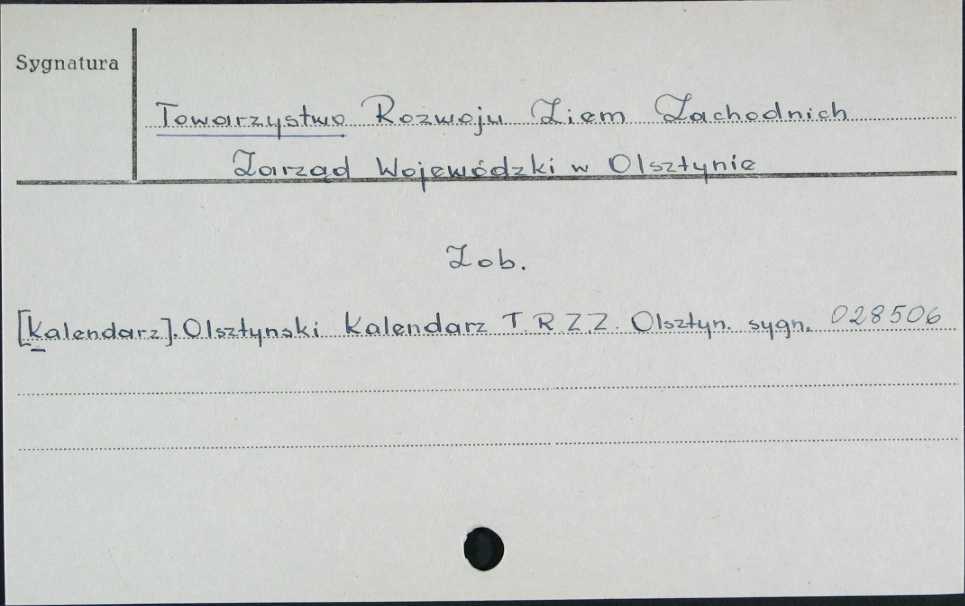 Sygnatura
Towarzystwo Rozwoju Ziem Zachodnich
Zarząd Wojewódzki w Olsztynie
Zob.
[Kalendarz]. Olsztynski Kalendarz T.R.Z.Z. Olsztyn. sygn. 028506